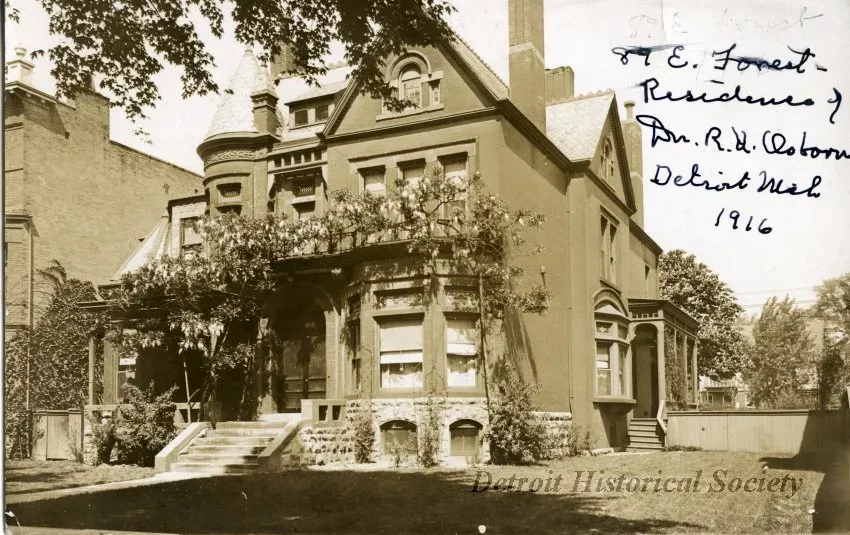 89 E Forest
89 E. Forest-
Residence of
Dr. R. H. Osborn
Detroit Mch
1916
Detroit Historical Society